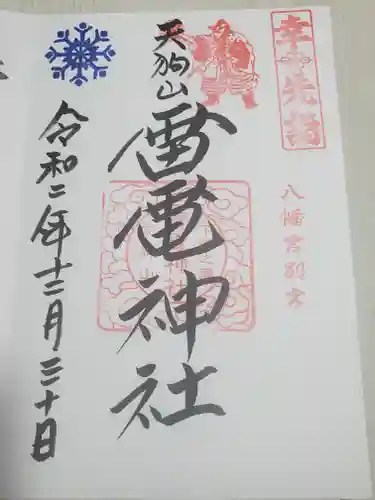 幸先詣
八幡宮別宮
天狗山
雷電神社
令和二年十二月三十日